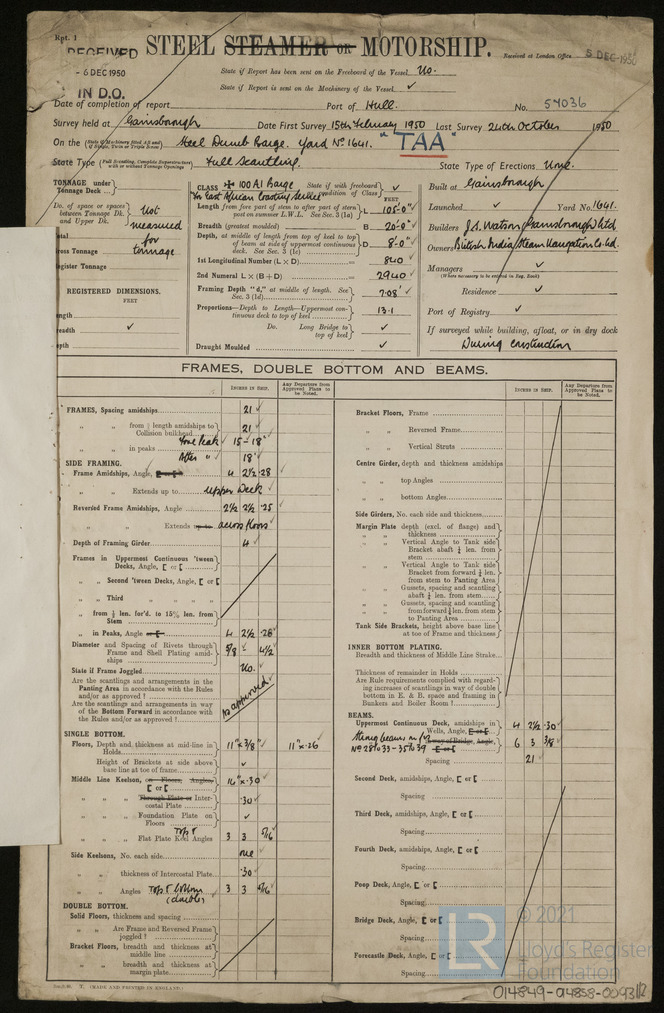 Rpt. 1
RECEIVED
- 6 DEC 1950
IN D.O.
STEEL STEAMER OR MOTORSHIP.
Received at London Office 5 DEC 1950
State if Report has been sent on the Freeboard of the Vessel No.
State if Report is sent on the Machinery of the Vessel ✓
Date of completion of report
Port of Hull.
No. 57036
Survey held at Gainsborough
Date First Survey 15th February 1950 Last Survey 24th October 1950
On the Steel Dumb Barge. Yard No 1641. "TAA"
State Type Full Scantling.
State Type of Erections None.
TONNAGE under Tonnage Deck
Do. of space or spaces between Tonnage Dk. and Upper Dk.
Not measured for tonnage
Gross Tonnage
Register Tonnage
REGISTERED DIMENSIONS.
FEET
CLASS ✠ 100 A1 Barge
State if with freeboard as condition of Class ✓
For East African Coasting Service
FEET
Length from fore part of stem to after part of stern post on summer L.W.L. See Sec. 3 (1a) L 105'-0"
Breadth (greatest moulded) B 20'-0"
Depth, at middle of length from top of keel to top of beam at side of uppermost continuous deck. See Sec. 3 (1c) D 8'-0"
1st Longitudinal Number (L × D) 840
2nd Numeral L × (B + D) 2940
Framing Depth "d," at middle of length. See Sec. 3 (1d) 7.08'
Proportions—Depth to Length—Uppermost continuous deck to top of keel 13.1
Do. Long Bridge to top of keel ✓
Draught Moulded ✓
Built at Gainsborough
Launched ✓ Yard No. 1641.
Builders J.S. Watson (Gainsborough) Ltd
Owners British India Steam Navigation Co. Ltd.
Managers ✓
(Where necessary to be entered in Reg. Book)
Residence ✓
Port of Registry ✓
If surveyed while building, afloat, or in dry dock
During construction
FRAMES, DOUBLE BOTTOM AND BEAMS.
INCHES IN SHIP.
Any Departure from Approved Plans to be Noted.
INCHES IN SHIP.
Any Departure from Approved Plans to be Noted.
FRAMES, Spacing amidships 21 ✓
" " from ½ length amidships to Collision bulkhead 21 ✓
" " in peaks Fore Peak 15 - 18 ✓
After " 18 ✓
SIDE FRAMING.
Frame Amidships, Angle, 4 2½ .28 ✓
" " Extends up to Upper Deck ✓
Reversed Frame Amidships, Angle 2½ 2½ .25 ✓
" " Extends up to across floors ✓
Depth of Framing Girder 4 ✓
Frames in Uppermost Continuous 'tween Decks, Angle, [ or [
" " Second 'tween Decks, Angle, [ or [
" " Third " " " "
" " from ½ len. for'd. to 15% len. from Stem
" " in Peaks, Angle 4 2½ .28 ✓
Diameter and Spacing of Rivets through Frame and Shell Plating amidships 5/8 4½ ✓
State if Frame Joggled No. ✓
Are the scantlings and arrangements in the Panting Area in accordance with the Rules and/or as approved ?
Are the scantlings and arrangements in way of the Bottom Forward in accordance with the Rules and/or as approved ?
As approved ✓
SINGLE BOTTOM.
Floors, Depth and thickness at mid-line in Holds 11" x 3/8" ✓ 11" x .26 ✓
Height of Brackets at side above base line at toe of frame ✓
Middle Line Keelson, on Floors, Angles, [ or [ 16" x .30 ✓
" " Through Plate or Intercostal Plate .30 ✓
" " Foundation Plate on Floors ✓
" " Top & Flat Plate Keel Angles 3 3 5/16 ✓
Side Keelsons, No. each side one ✓
" " thickness of Intercostal Plate .30 ✓
" " Angles Top & bottom (double) 3 3 5/16 ✓
DOUBLE BOTTOM.
Solid Floors, thickness and spacing
" " Are Frame and Reversed Frame joggled ?
Bracket Floors, breadth and thickness at middle line
" " breadth and thickness at margin plate
Bracket Floors, Frame
" " Reversed Frame
" " Vertical Struts
Centre Girder, depth and thickness amidships
" " top Angles
" " bottom Angles
Side Girders, No. each side and thickness
Margin Plate depth (excl. of flange) and thickness
" " Vertical Angle to Tank side Bracket abaft ¼ len. from stem
" " Vertical Angle to Tank side Bracket from forward ¼ len. from stem to Panting Area
" " Gussets, spacing and scantling abaft ¼ len. from stem
" " Gussets, spacing and scantling from forward ¼ len. from stem to Panting Area
Tank Side Brackets, height above base line at toe of Frame and thickness
INNER BOTTOM PLATING.
Breadth and thickness of Middle Line Strake
Thickness of remainder in Holds
Are Rule requirements complied with regarding increases of scantlings in way of double bottom in E. & B. space and framing in Bunkers and Boiler Room ?
BEAMS.
Uppermost Continuous Deck, amidships in Wells, Angle, [ or [ 4 2½ .30 ✓
Strong beams in Nos 28 to 33 - 35 to 39 6 3 3/8 ✓
Spacing 21 ✓
Second Deck, amidships, Angle, [ or [
Spacing
Third Deck, amidships, Angle, [ or [
Spacing
Fourth Deck, amidships, Angle, [ or [
Spacing
Poop Deck, Angle, [ or [
Spacing
Bridge Deck, Angle, [ or [
Spacing
Forecastle Deck, Angle, [ or [
Spacing
(MADE AND PRINTED IN ENGLAND)
LR
© 2021
Lloyd's Register
Foundation
014849-014858-0093 1/2